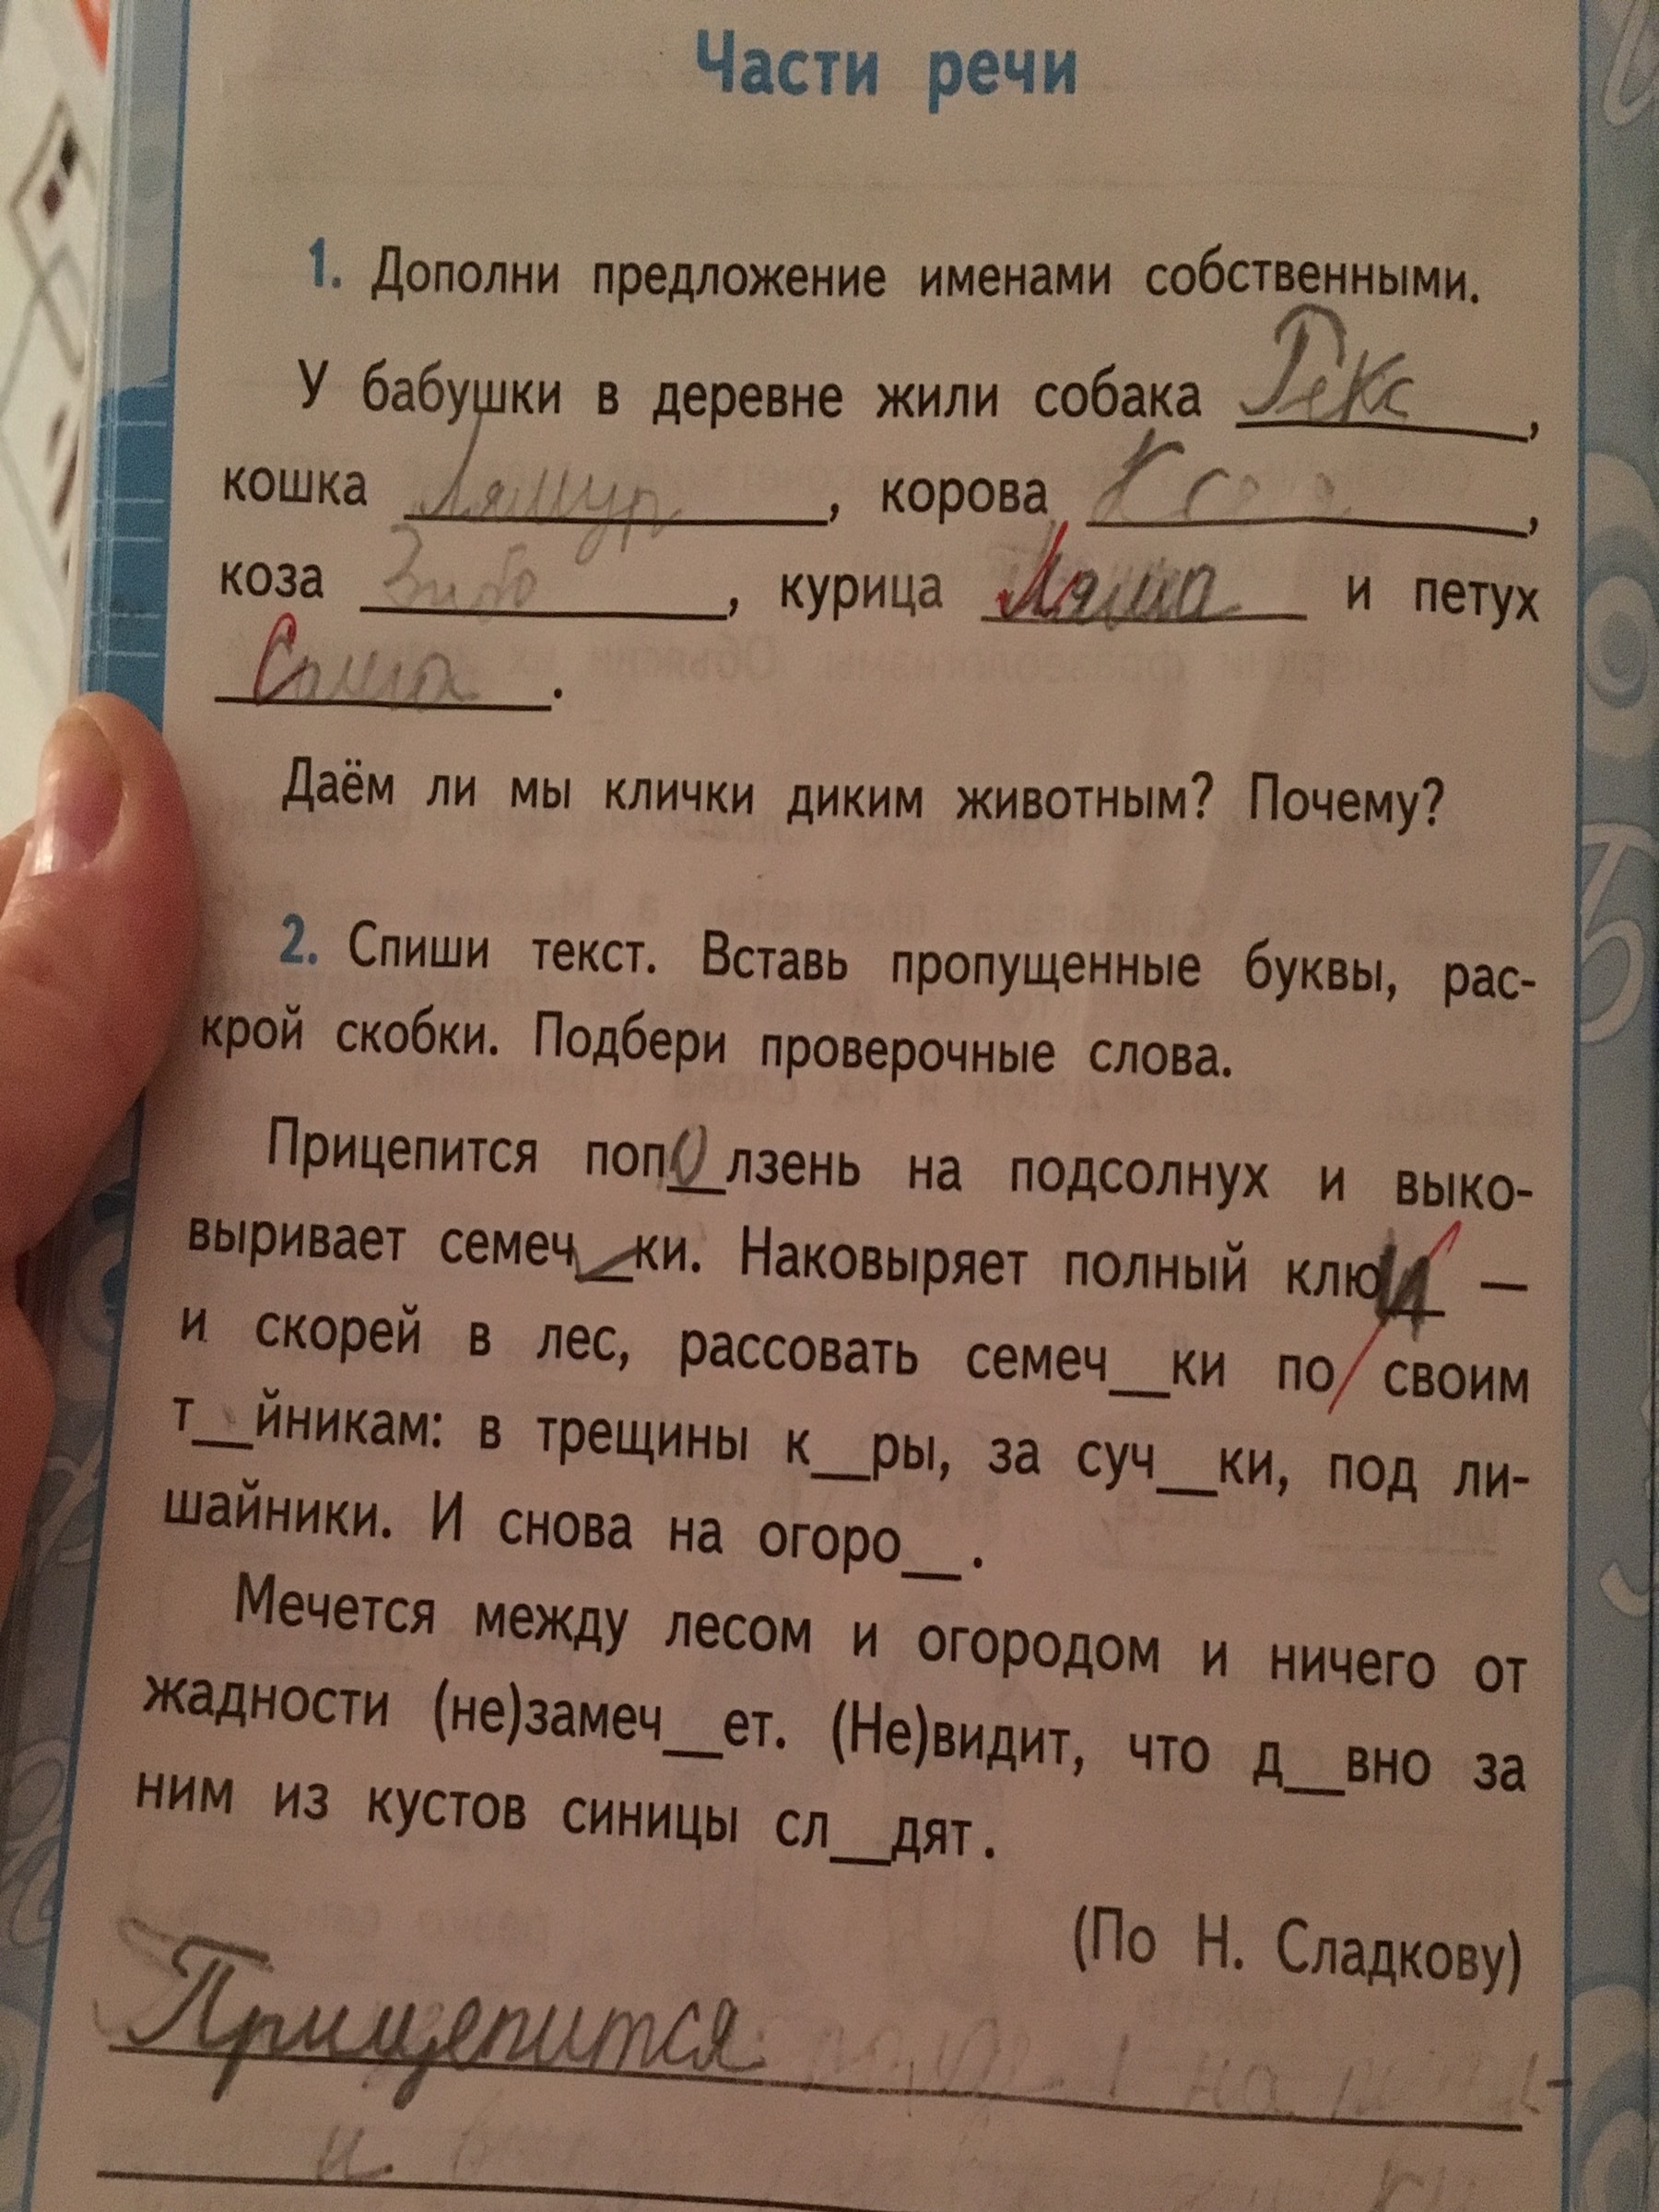 Части речи
1. Дополни предложение именами собственными.
У бабушки в деревне жили собака Рекс,
кошка Ляшур, корова ,
коза , курица Ляша и петух
Саша.
Даём ли мы клички диким животным? Почему?
2. Спиши текст. Вставь пропущенные буквы, рас-
крой скобки. Подбери проверочные слова.
Прицепится поп_О_лзень на подсолнух и выко-
выривает семеч__ки. Наковыряет полный клю_ —
и скорей в лес, рассовать семеч__ки по/своим
т__йникам: в трещины к__ры, за суч__ки, под ли-
шайники. И снова на огоро__.
Мечется между лесом и огородом и ничего от
жадности (не)замеч__ет. (Не)видит, что д__вно за
ним из кустов синицы сл__дят.
(По Н. Сладкову)
Прицепится на